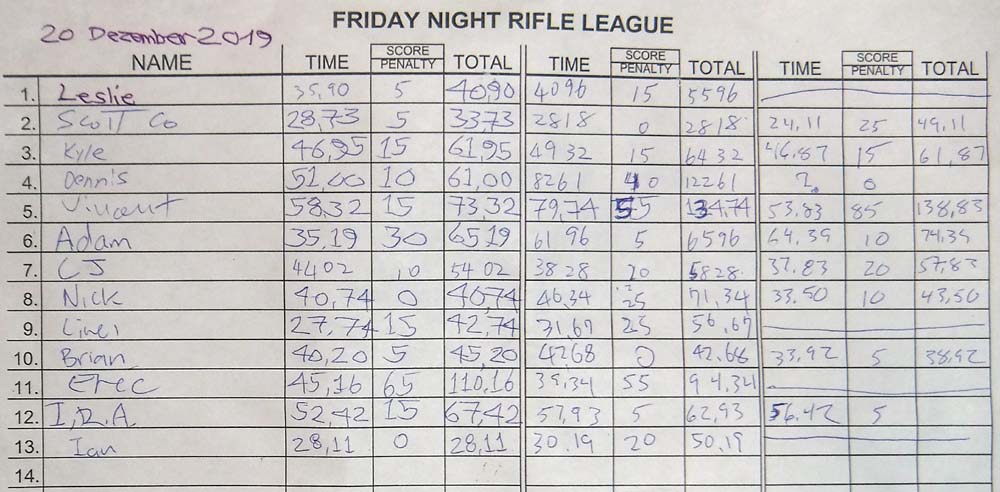 FRIDAY NIGHT RIFLE LEAGUE
20 Dezember 2019
NAME TIME SCORE PENALTY TOTAL TIME SCORE PENALTY TOTAL TIME SCORE PENALTY TOTAL
1. Leslie 35,90 5 40,90 4096 15 5596
2. Scott Co 28,73 5 33,73 2818 0 2818 24,11 25 49,11
3. Kyle 46,95 15 61,95 4932 15 6432 46,87 15 61,87
4. Dennis 51,00 10 61,00 8261 40 12261 ? 0
5. Vincent 58,32 15 73,32 79,74 55 134,74 53.83 85 138,83
6. Adam 35,19 30 6519 6196 5 6596 64,39 10 74,39
7. CJ 4402 10 5402 3828 20 5828 37.83 20 57,83
8. Nick 40,74 0 40,74 46,34 25 71,34 33.50 10 43,50
9. 27,74 15 42,74 31,67 25 56,67
10. Brian 40,20 5 45,20 4268 0 42,68 33,92 5 38,92
11. Erec 45,16 65 110,16 39,34 55 94,34
12. I,R.A 52,42 15 67,42 57,93 5 62,93 56.42 5
13. Ian 28,11 0 28,11 30.19 20 50,19
14.